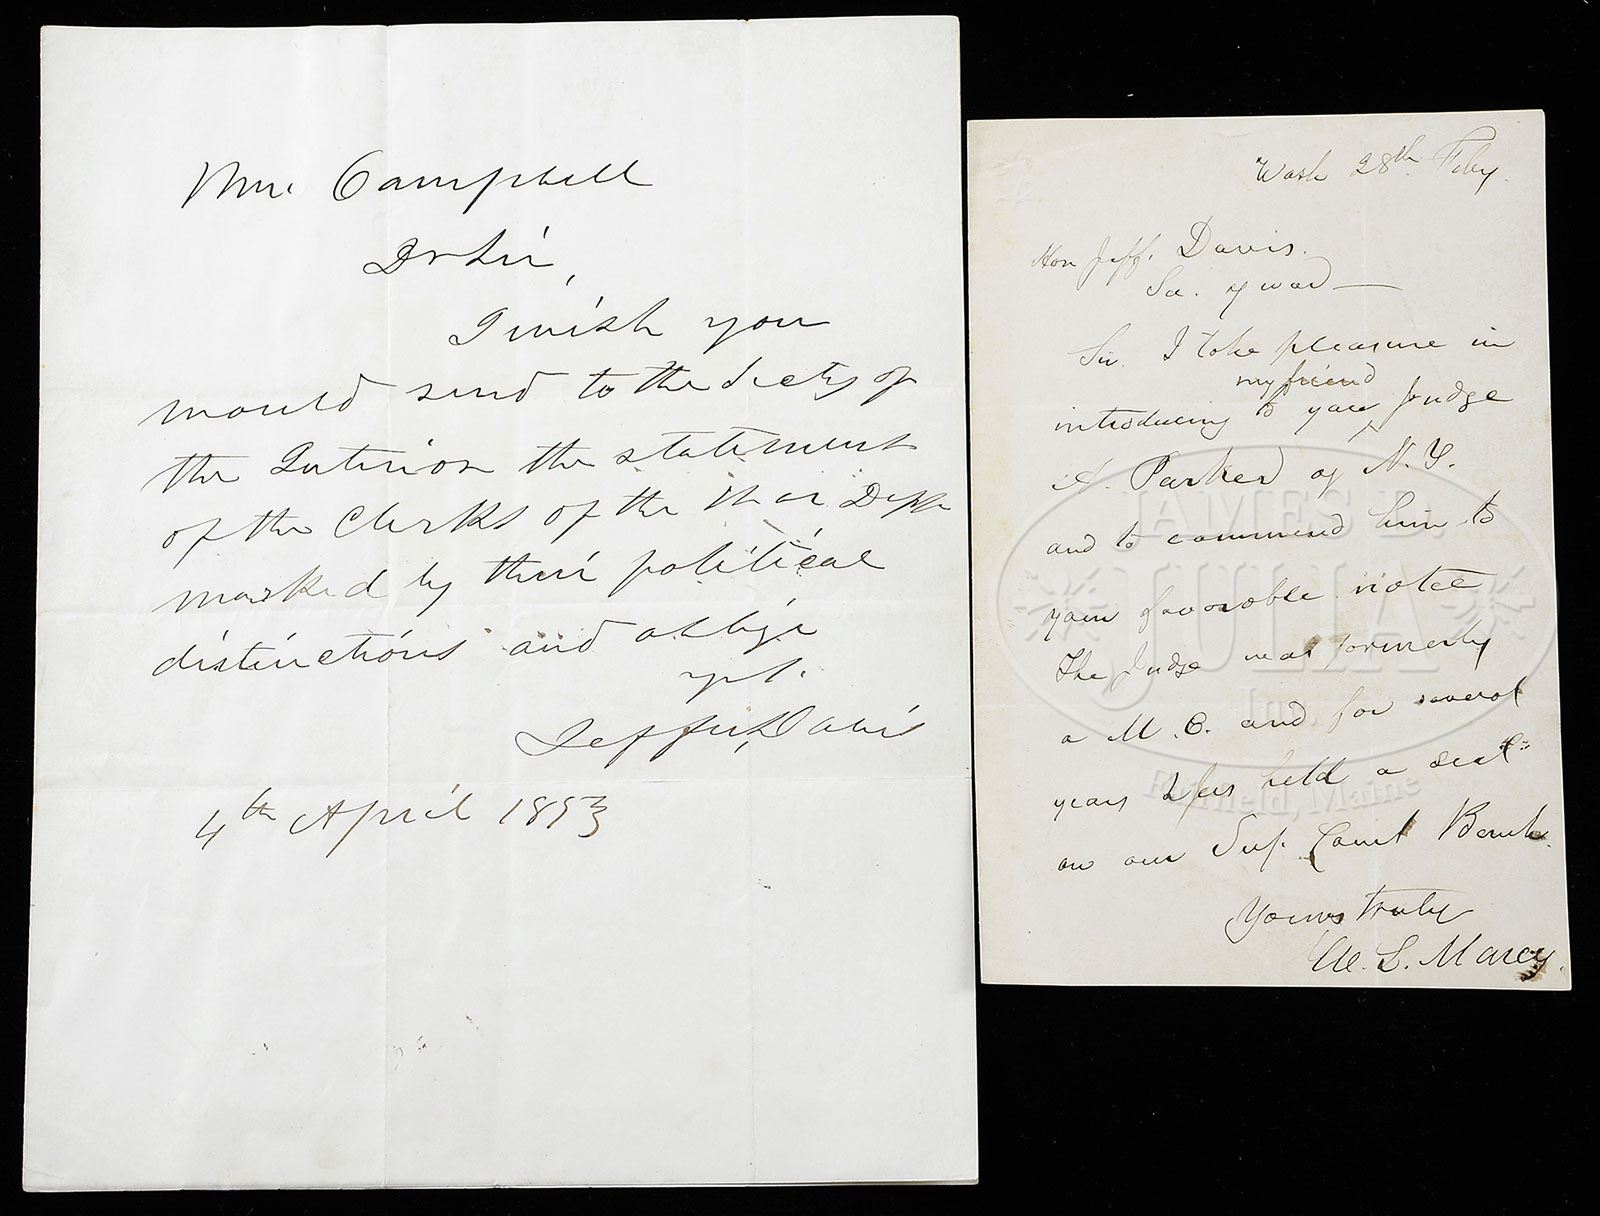 Mr. Campbell
Dr Sir,
I wish you
would send to the Secty of
the Interior the statement
of the Clerks of the War Dept
marked by their political
distinctions and oblige
yrs.
Jeffn, Davis
4th April 1853
Wash 28th Feby.
Hon Jeff. Davis.
Se. y War —
Sir. I take pleasure in
my friend
introducing to you Judge
A. Parker of N. Y.
and to commend him to
your favorable notice
The Judge was formerly
a M. C. and for several
years has held a seat
on our Sup. Court Bench.
Yours truly
W. L. Marcy.
JAMES D.
JULIA
Inc.
Fairfield, Maine